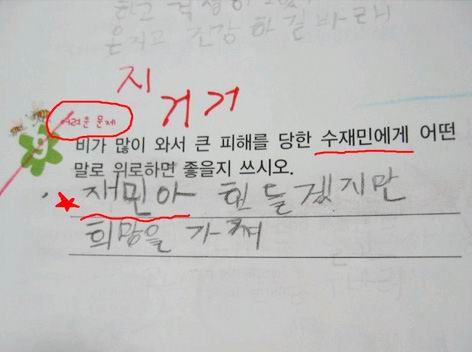 하고 걱정이
웃지고 건강하길 바래
지
거거
어려운 문제
비가 많이 와서 큰 피해를 당한 수재민에게 어떤
말로 위로하면 좋을지 쓰시오.
재민아 힌들겠지만
희망을 가져